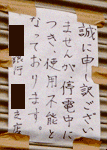 誠に申し訳ござい
ませんが停電中に
つき使用不能と
なっております。
銀行 支店